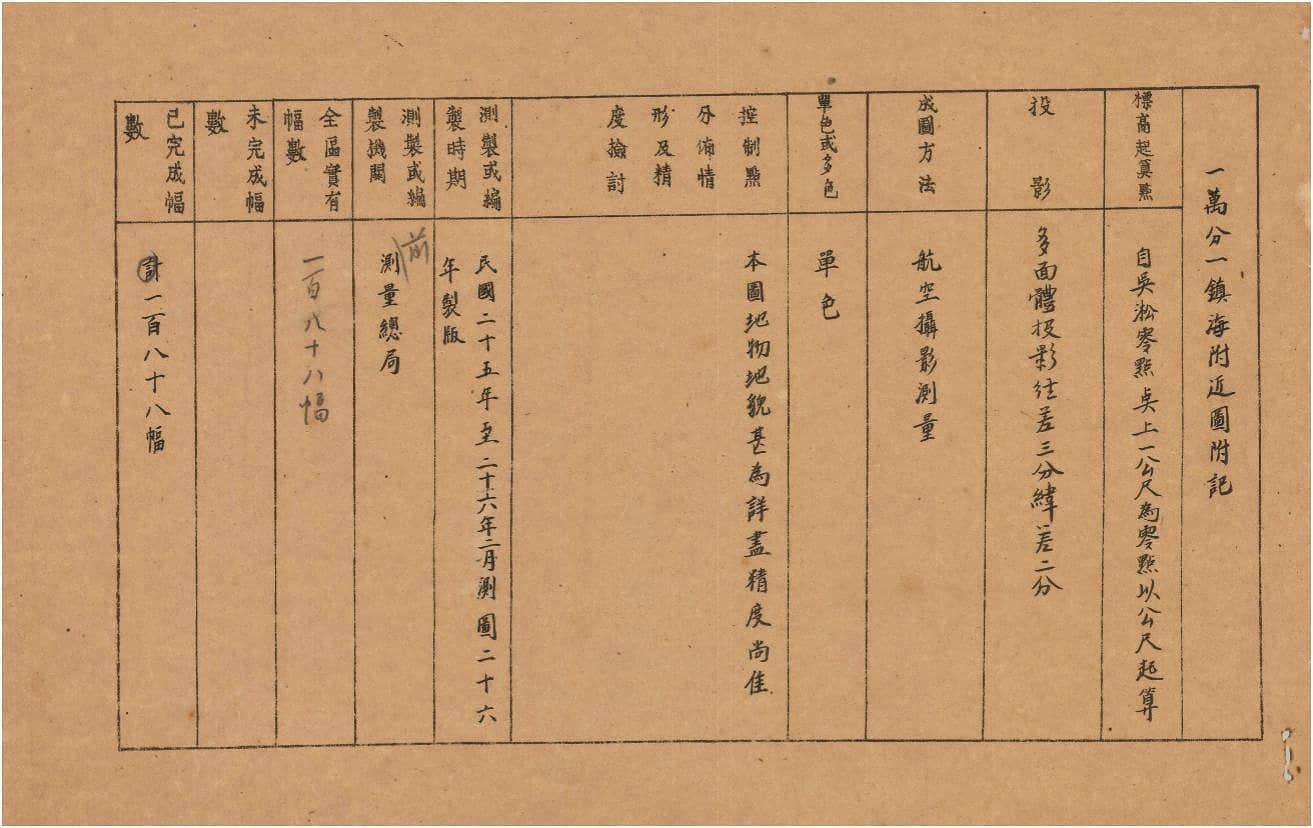 一萬分一鎮海附近圖附記
標高起算點
自吳淞零點奌上一公尺為零點以公尺起算
投影
多面體投影经差三分緯差二分
成圖方法
航空攝影測量
單色或多色
單色
控制點
分佈情
形及精
度檢討
本圖地物地貌甚為詳盡精度尚佳
測製或編
製時期
民國二十五年至二十六年二月測圖二十六
年製版
測製或編
製機關
前
測量總局
全區實有
幅數
一百八十八幅
未完成幅
數
已完成幅
數
計一百八十八幅